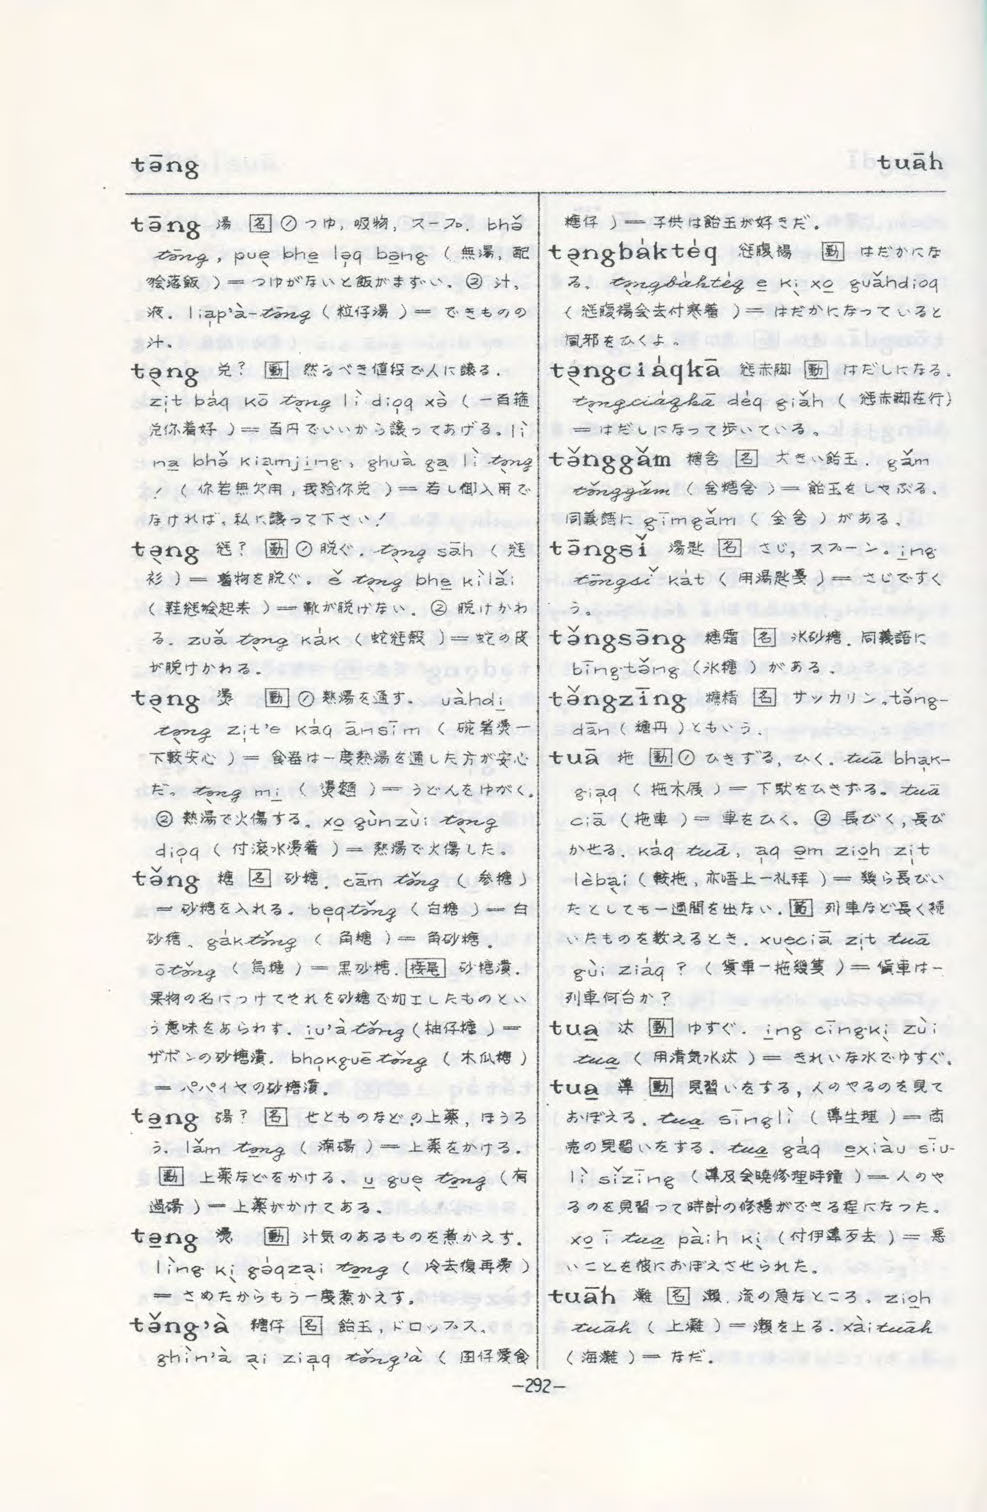 tāng
tuāh
tə̄ng 湯 [名] ①つゆ，吸物，スープ。bhə̌
tə̄ng, puẹ bhe lə̣q bə̱ng (無湯，配
𣍐落飯)=つゆがないと飯がまずい。②汁，
液。liạp'à-tə̄ng (粒仔湯)=できものの
汁。
tə̣ng 兌? [動] 然るべき値段で人に譲る。
zịt báq kō tə̣ng lì dioq xə̀ (一百箍
兌你着好)=百円でいいから譲ってあげる。lì
na̱ bhə̌ kiạmjiṉg, ghuà gạ lì tə̣ng
! (你若無欠用，我給你兌)=若し御入用で
なければ，私に譲って下さい!
tə̣ng 褪? [動] ①脱ぐ。tə̣ng sāh (褪
衫)=着物を脱ぐ。ě tə̣ng bhe̱ kì lǎi
(鞋褪𣍐起来)=靴が脱げない。②脱けかわ
る。zuǎ tə̣ng kák (蛇褪殻)=蛇の皮
が脱けかわる。
tə̣ng 燙 [動] ①熱湯を通す。uàhdi̱
tə̣ng zịt'e káq ānsīm (碗箸燙一
下較安心)=食器は一度熱湯を通した方が安心
だ。tə̣ng mi̱ (燙麺)=うどんをゆがく。
②熱湯で火傷する。xo̱ gùnzùi tə̣ng
dioq (付滾水燙着)=熱湯で火傷した。
tə̌ng 糖 [名] 砂糖。cām tə̌ng (参糖)
=砂糖を入れる。beqtə̌ng (白糖)=白
砂糖。gáktə̌ng (角糖)=角砂糖。
ōtə̌ng (烏糖)=黒砂糖。[接尾] 砂糖漬。
果物の名につけてそれを砂糖で加工したものとい
う意味をあらわす。iu̱'à tə̌ng (柚仔糖)=
ザボンの砂糖漬。bhọkguē tə̌ng (木瓜糖)
=パパイヤの砂糖漬。
tə̱ng 碭? [名] せとものなどの上薬，ほうろ
う。lǎm tə̱ng (淋碭)=上薬をかける。
[動] 上薬などをかける。u̱ guẹ tə̱ng (有
過碭)=上薬がかけてある。
tə̱ng [動] 汁気のあるものを煮かえす。
lìng kị gəqzại tə̱ng (冷去復再)
=さめたからもう一度煮かえす。
tə̌ng'à 糖仔 [名] 飴玉，ドロップス。
ghìn'à ại ziạq tə̌ng'à (囝仔愛食
糖仔)=子供は飴玉が好きだ。
tə̣ngbáktéq 褪腹裼 [動] はだかにな
る。tə̣ngbáktéq e̱ kị xo̱ guǎhdioq
(褪腹裼会去付寒着)=はだかになっていると
風邪をひくよ。
tə̣ngciáqkā 褪赤脚 [動] はだしになる。
tə̣ngciáqkā déq giǎh (褪赤脚在行)
=はだしになって歩いている。
tə̌nggǎm 糖含 [名] 大きい飴玉。gǎm
tə̌nggǎm (含糖含)=飴玉をしゃぶる。
同義語に gīmgǎm (金含)がある。
tə̄ngsǐ 湯匙 [名] さじ，スプーン。i̱ng
tə̄ngsǐ kát (用湯匙戛)=さじですく
う。
tə̌ngsə̄ng 糖霜 [名] 氷砂糖。同義語に
bīngtə̌ng (氷糖)がある。
tə̌ngzīng 糖精 [名] サッカリン。tə̌ng-
dān (糖丹)ともいう。
tuā 拖 [動] ①ひきずる，ひく。tuā bhạk-
giạq (拖木屐)=下駄をひきずる。tuā
ciā (拖車)=車をひく。②長びく，長び
かせる。káq tuā, ạq ə̱m zio̱h zịt
lèbại (較拖，亦唔上一礼拝)=幾ら長びい
たとしても一週間を出ない。[助] 列車など長く連
いたものを数えるとき。xuẹciā zịt tuā
gùi ziáq? (貨車一拖幾隻)=貨車は一
列車何台か?
tua̱ 汰 [動] ゆすぐ。i̱ng cīngkị zùi
tua̱ (用清気水汰)=きれいな水でゆすぐ。
tua̱ 導 [動] 見習いをする，人のやるのを見て
おぼえる。tua̱ sīnglì (導生理)=商
売の見習いをする。tua̱ gáq exiàu siu-
lì sǐzīng (導及会曉修理時鐘)=人のや
るのを見習って時計の修繕ができる程になった。
xo̱ ī tua̱ pàih kị (付伊導歹去)=悪
いことを彼におぼえさせられた。
tuāh 灘 [名] 瀬，流の急なところ。zio̱h
tuāh (上灘)=瀬を上る。xàituāh
(海灘)=なだ。
-292-